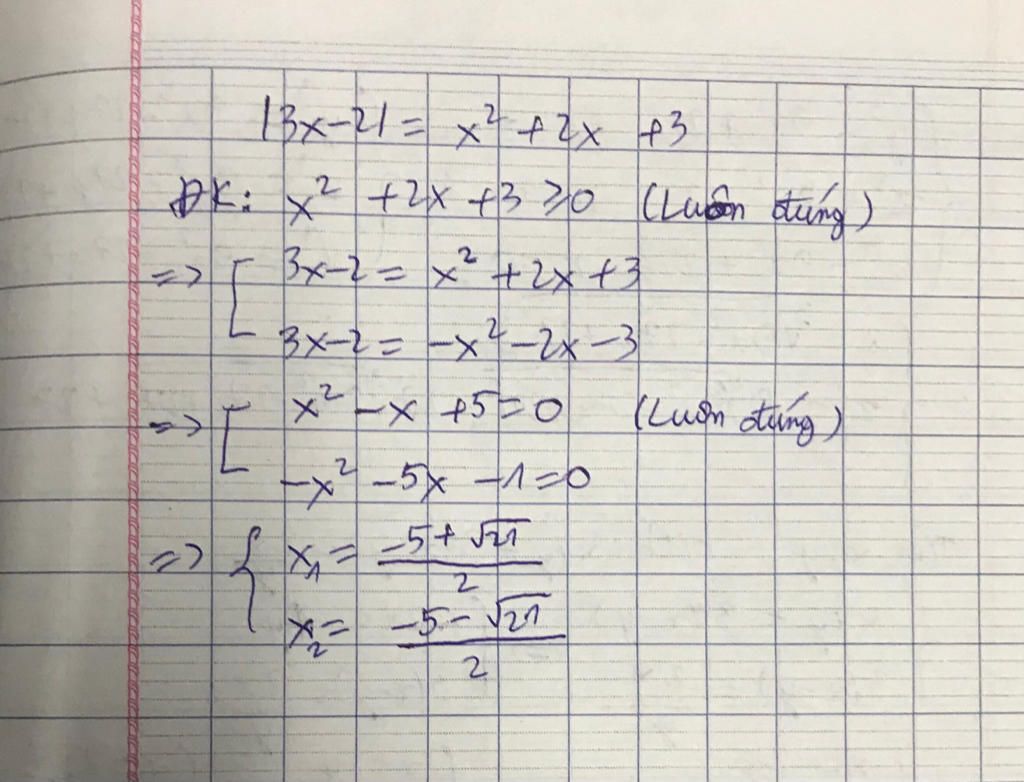 |3x-2| = x² + 2x + 3
ĐK: x² + 2x + 3 ≥ 0 (Luôn đúng)
=> [ 3x-2 = x² + 2x + 3
3x-2 = -x² - 2x - 3
=> [ x² - x + 5 = 0 (Luôn đúng)
-x² - 5x - 1 = 0
=> { x₁ = (-5 + √21)/2
x₂ = (-5 - √21)/2